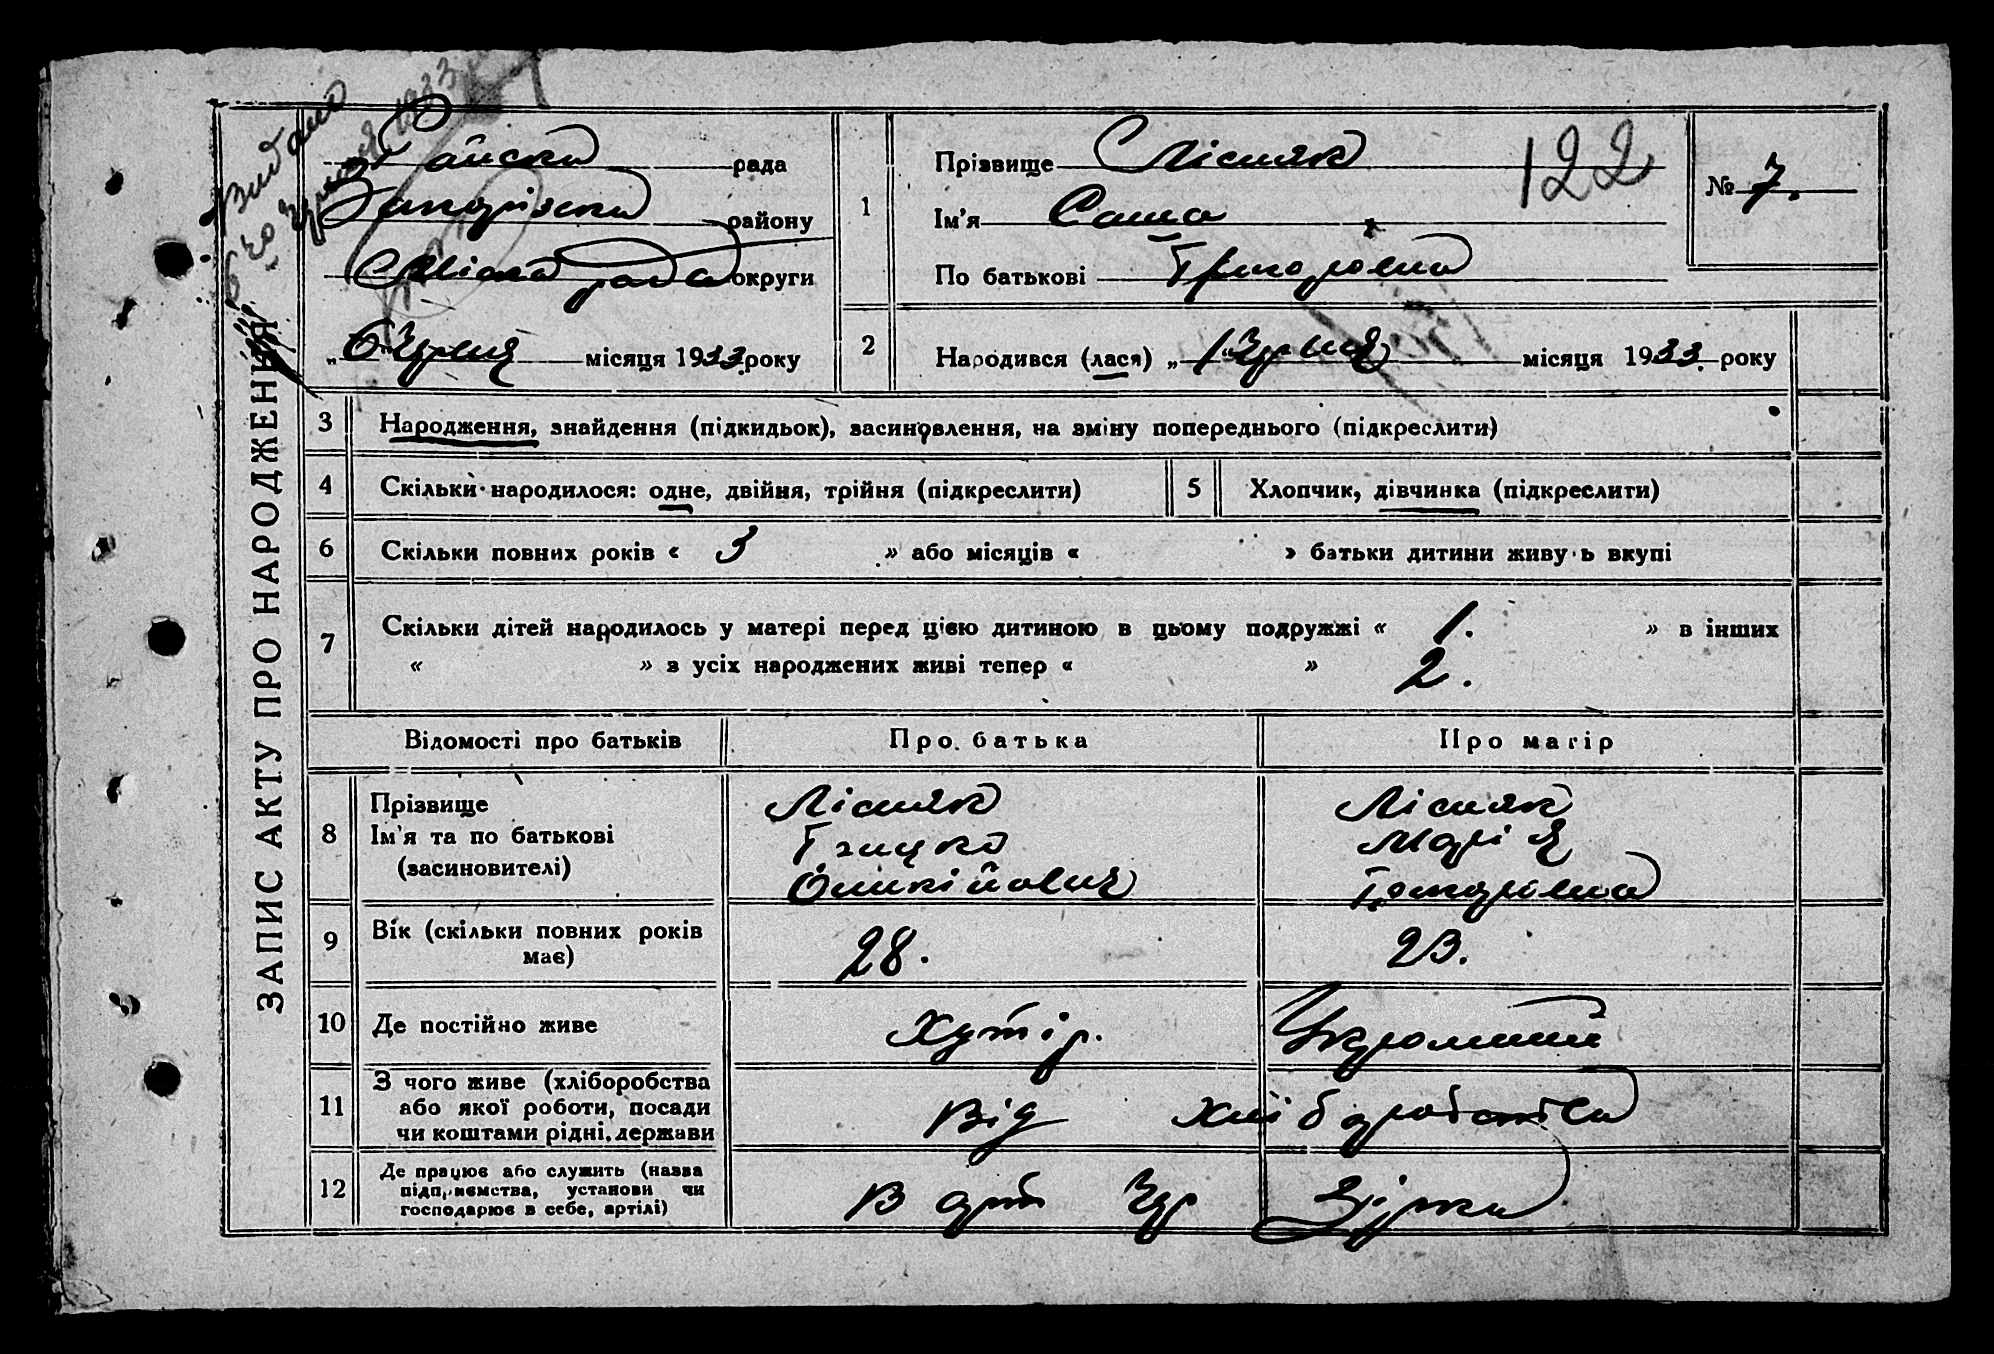 Видано
6го Червня 1933
ЗАПИС АКТУ ПРО НАРОДЖЕННЯ
рада
району
округи
„6“ Червня місяця 1933 року
1 Прізвище Лісняк
122
№ 7.
Ім'я Саша
По батькові Григоровна
2 Народився (лася) „1“ Червня місяця 1933. року
3 Народження, знайдення (підкидьок), засиновлення, на зміну попереднього (підкреслити)
4 Скільки народилося: одне, двійня, трійня (підкреслити)
5 Хлопчик, дівчинка (підкреслити)
6 Скільки повних років « 3 » або місяців « » батьки дитини живуть вкупі
7 Скільки дітей народилось у матері перед цією дитиною в цьому подружжі « 1. » в інших
« » в усіх народжених живі тепер « » 2.
Відомості про батьків Про батька Про матір
8 Прізвище
Ім'я та по батькові
(засиновителі)
Лісняк
Грицко
Лісняк
Марія
Григоровна
9 Вік (скільки повних років
має)
28.
23.
10 Де постійно живе Хутір.
11 З чого живе (хліборобства
або якої роботи, посади
чи коштами рідні, держави
Від Хліборобства
12 Де працює або служить (назва
підприємства, установи чи
господарює в себе, артілі)
В арт Чер Зірка